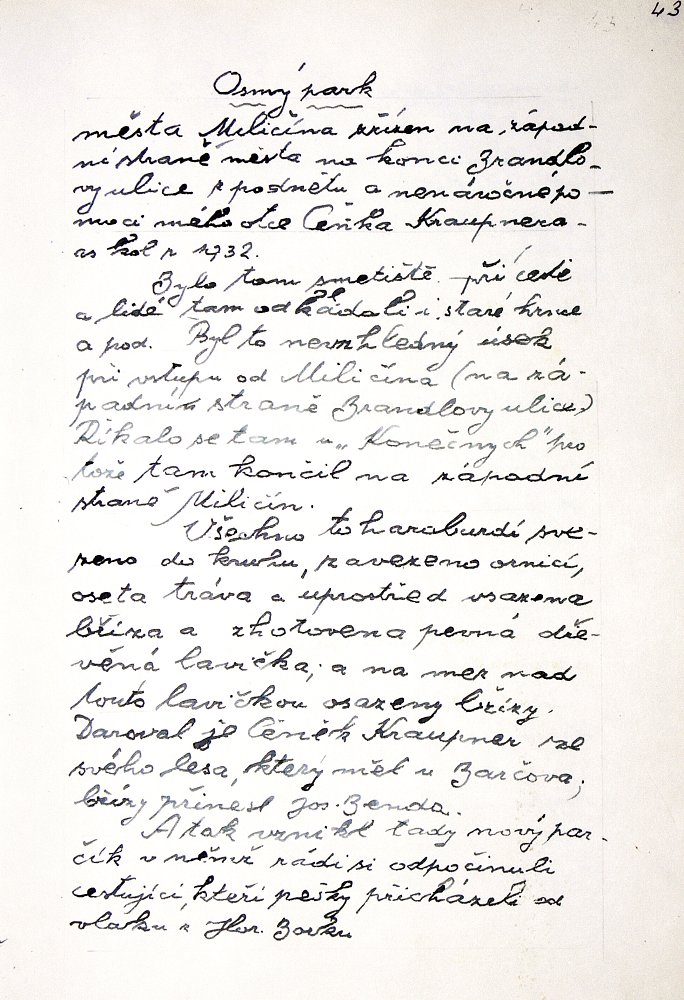 43
Osmý park
města Miličína zřízen na západ-
ní straně města na konci Brandlo-
vy ulice z podnětu a nenáročné po-
moci mého otce Čeňka Kraupnera -
as kol r 1932.
Bylo tam smetiště při cestě
a lidé tam odkládali i staré hrnce
a pod. Byl to nevzhledný úsek
při vstupu od Miličína (na zá-
padním straně Brandlovy ulice)
Říkalo se tam u „Konečných" pro
tože tam končil na západní
straně Miličín.
Všechno to haraburdí sve-
zeno do kruhu, zavezeno ornicí,
oseta tráva a uprostřed vsazena
bříza a zhotovena pevná dře-
věná lavička; a na mez nad
touto lavičkou osazeny břízy.
Daroval je Čeněk Kraupner ze
svého lesa, který měl u Barčova;
břízy přinesl Jos. Benda.
A tak vznikl tady nový par-
čík v němž rádi si odpočinuli
cestující, kteří pěšky přicházeli od
vlaku z Hor. Borku